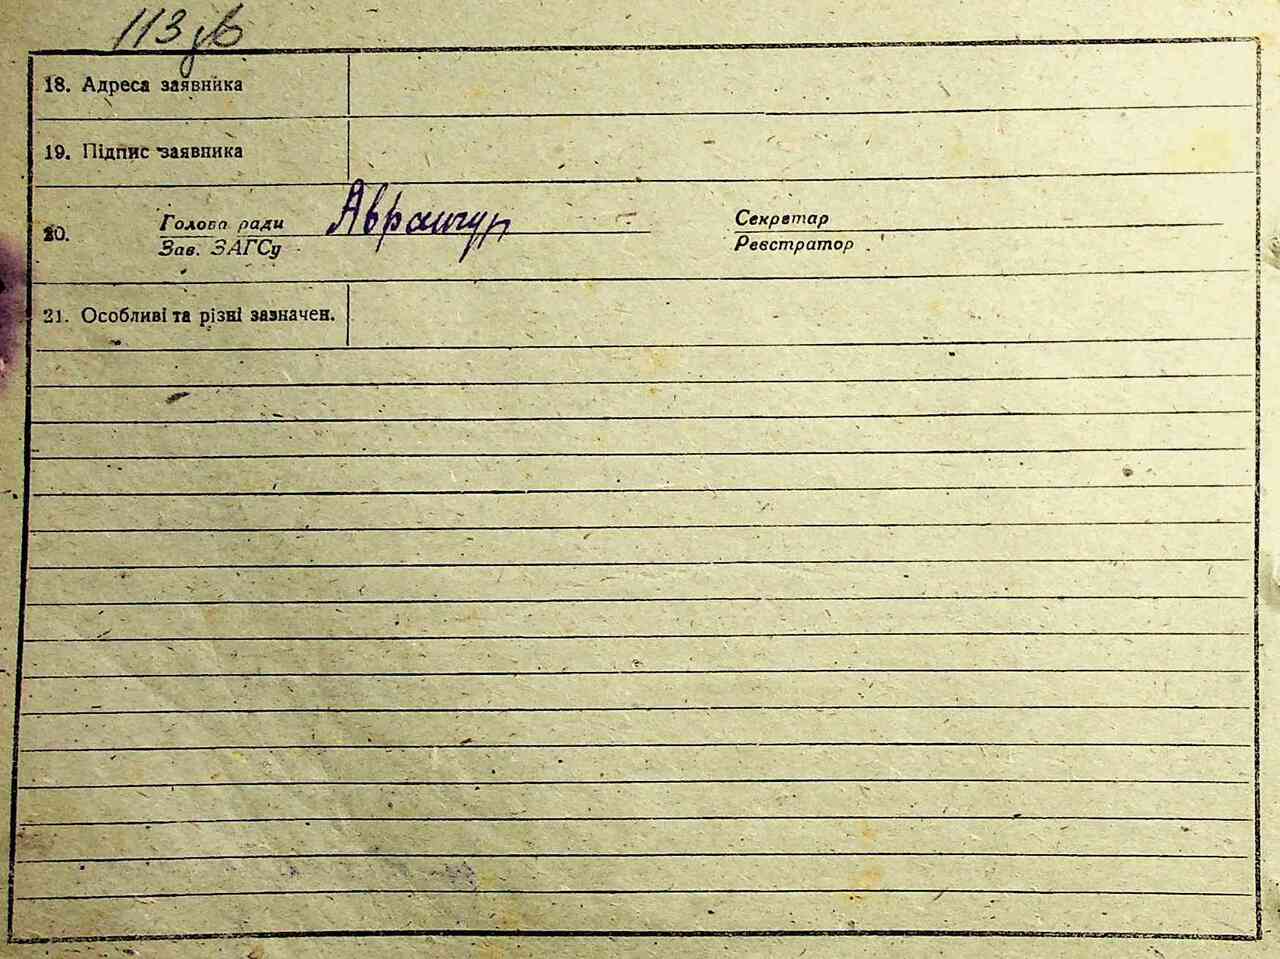 113 зв
18. Адреса заявника
19. Підпис заявника
20. Голова ради Аврамчук Секретар
Зав. ЗАГСу Реєстратор
21. Особливі та різні зазначен.